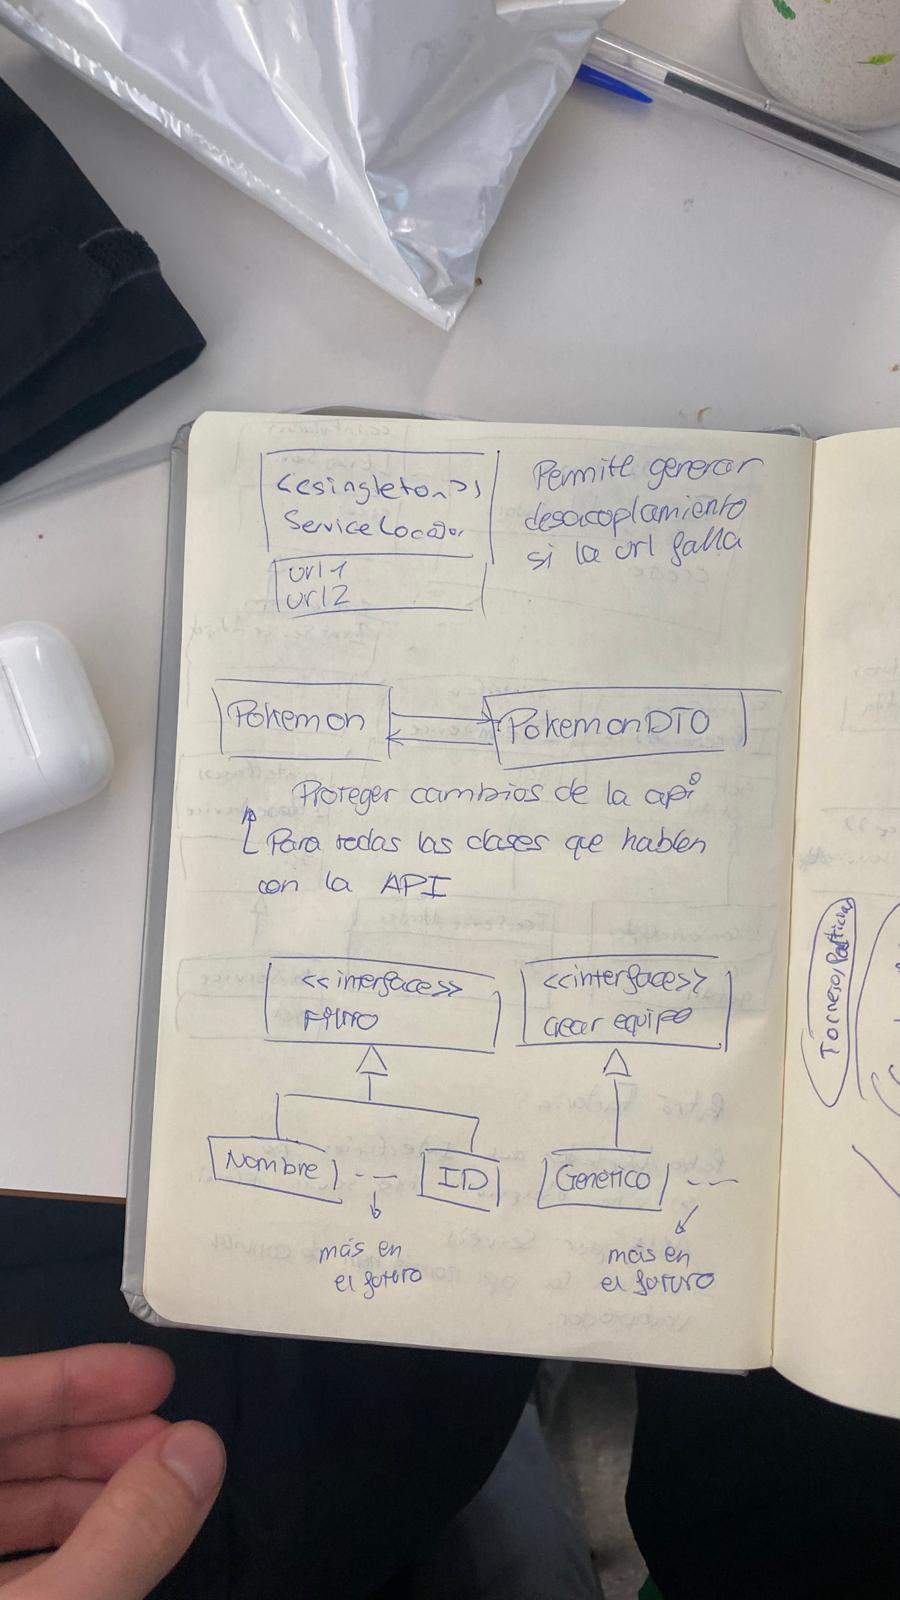 <<singleton>>
ServiceLocator
url1
url2
Permite generar
desacoplamiento
si la url falla
Pokemon
PokemonDTO
Proteger cambios de la api
Para todas las clases que hablen
con la API
<<interface>>
Filtro
<<interface>>
crear equipo
Nombre
ID
Genético
más en
el futuro
más en
el futuro
Torneos/Partidas